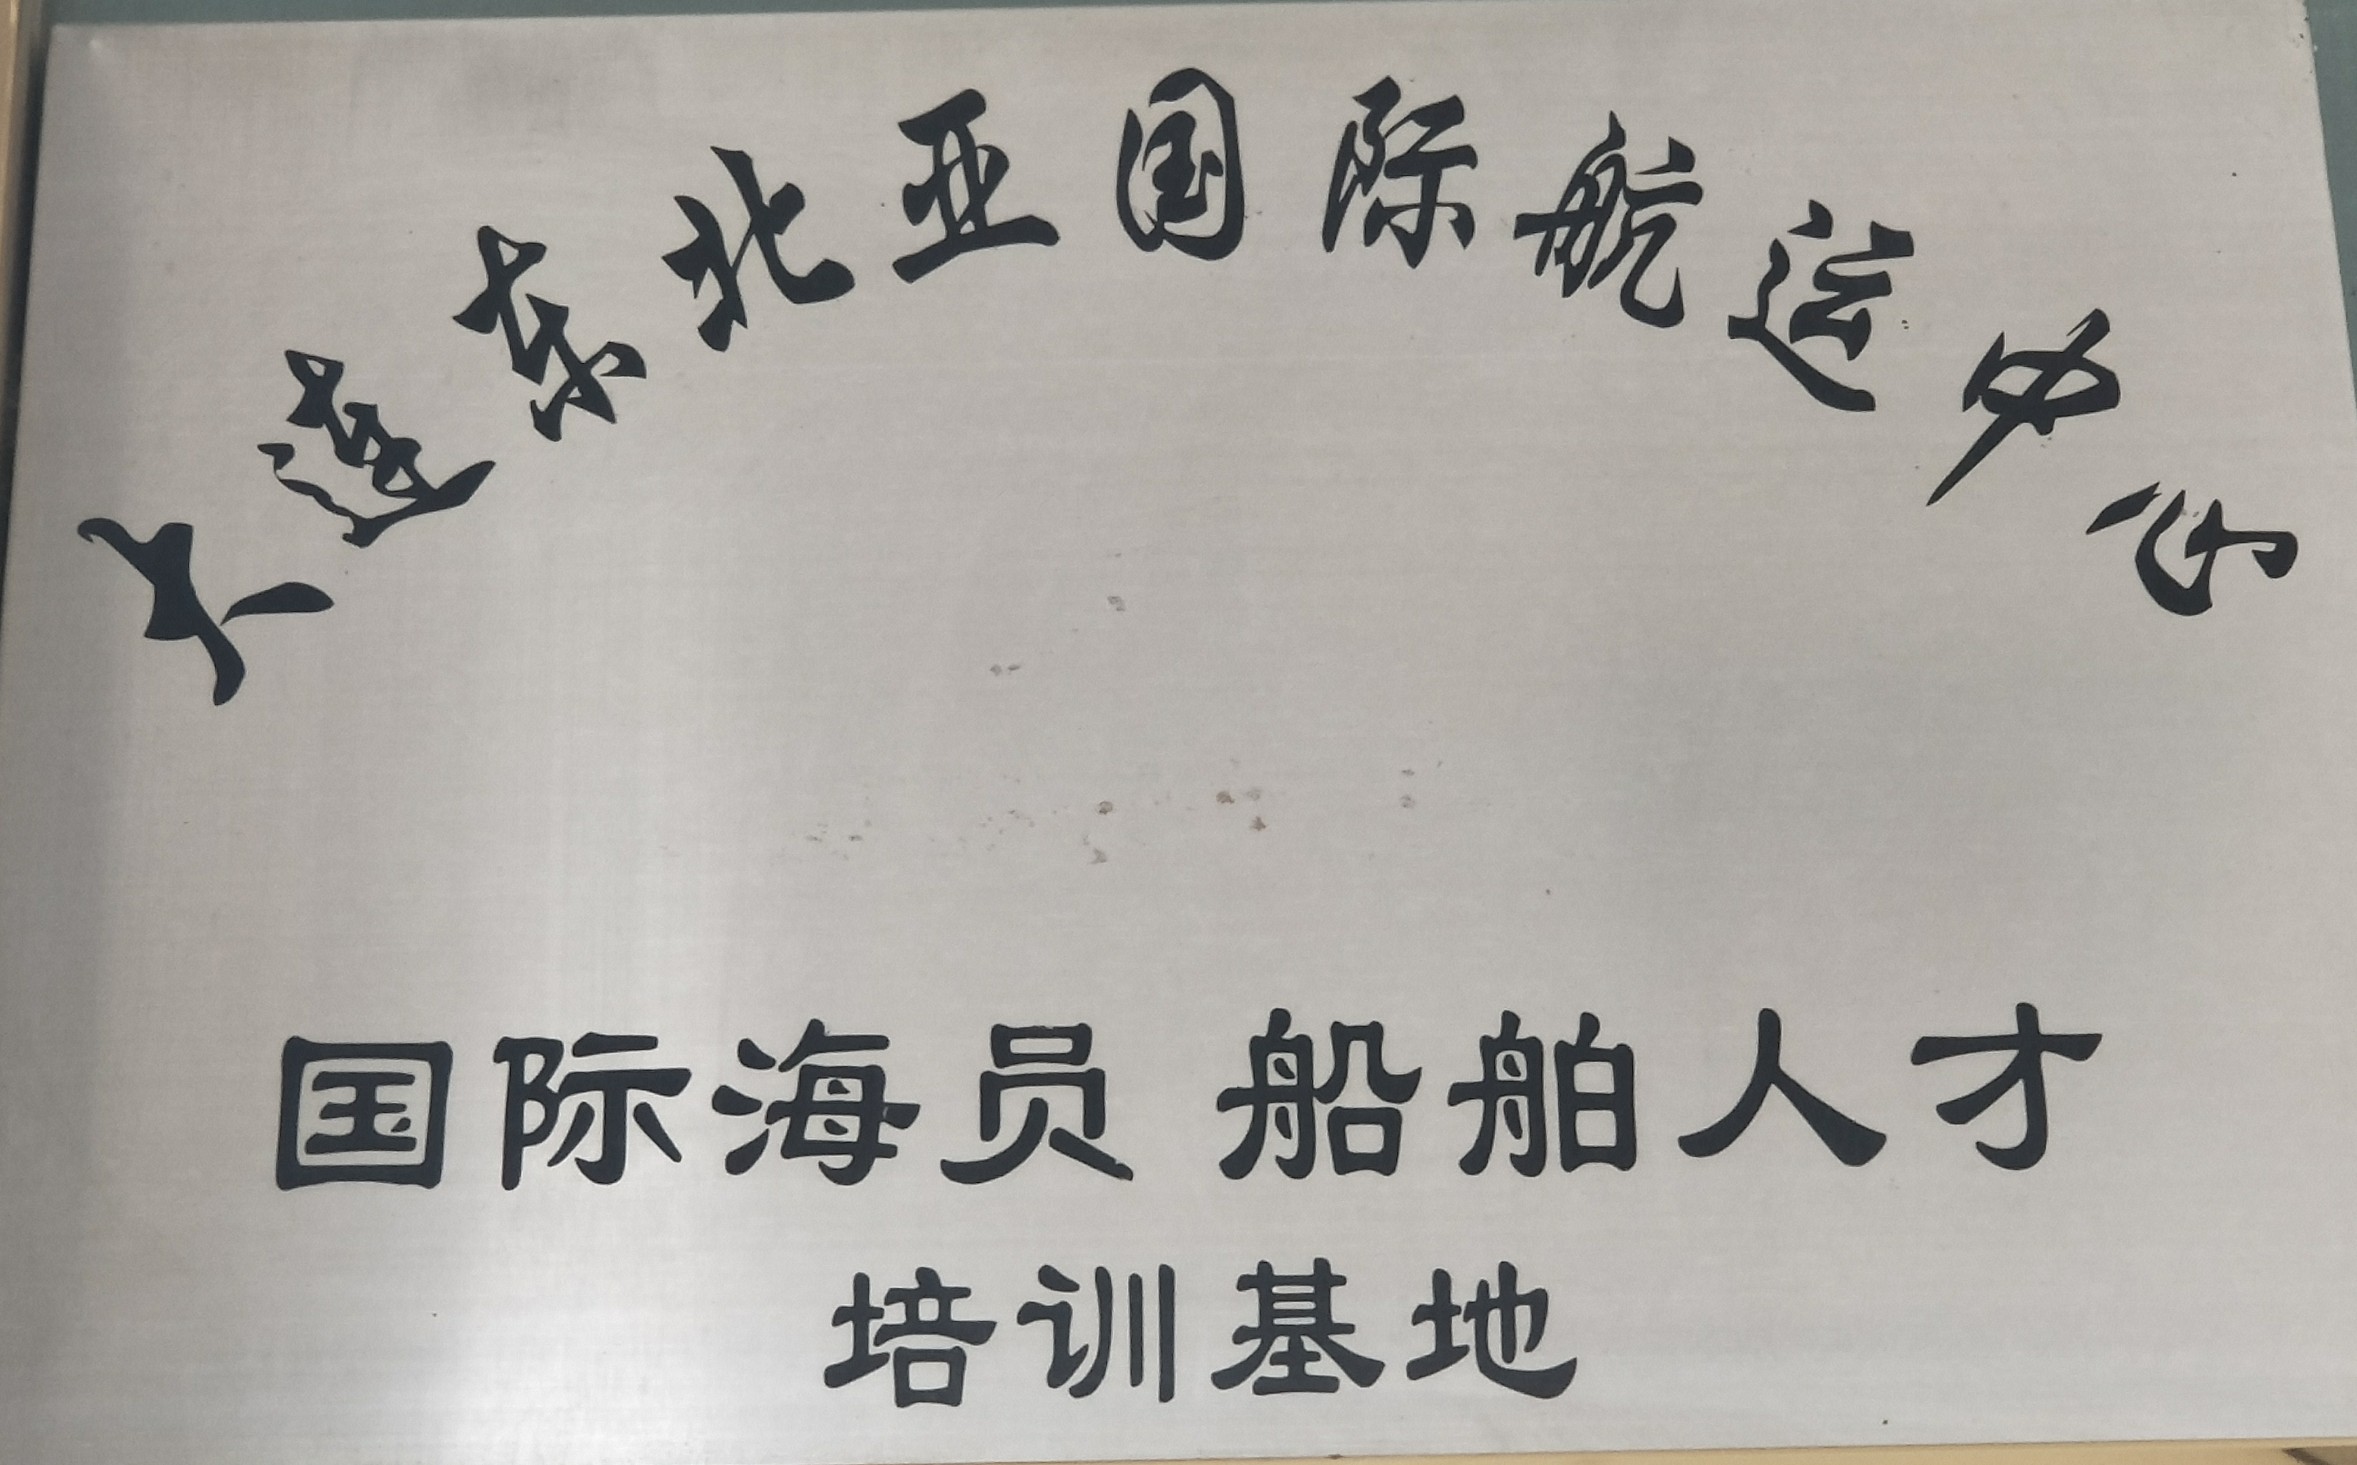 大连东北亚国际航运中心
国际海员 船舶人才
培训基地